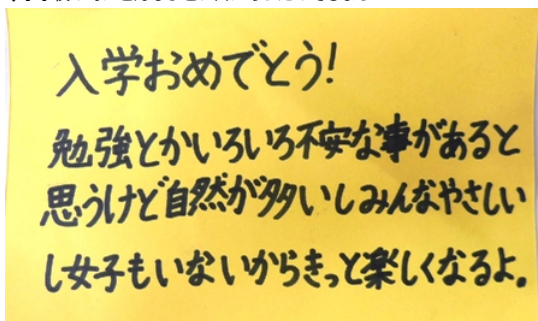 入学おめでとう!
勉強とかいろいろ不安な事があると
思うけど自然が多いしみんなやさしい
し女子もいないからきっと楽しくなるよ。